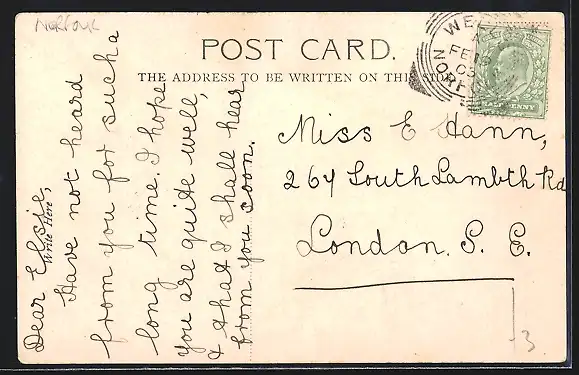 Norfolk
POST CARD.
THE ADDRESS TO BE WRITTEN ON THIS SIDE.
Write Here
Dear Elsie,
Have not heard
from you for such a
long time. I hope
you are quite well,
& that I shall hear
from you soon.
Miss E Hann,
264 South Lambth Rd
London. S. E.
HALF PENNY
FE 16
NORF
3